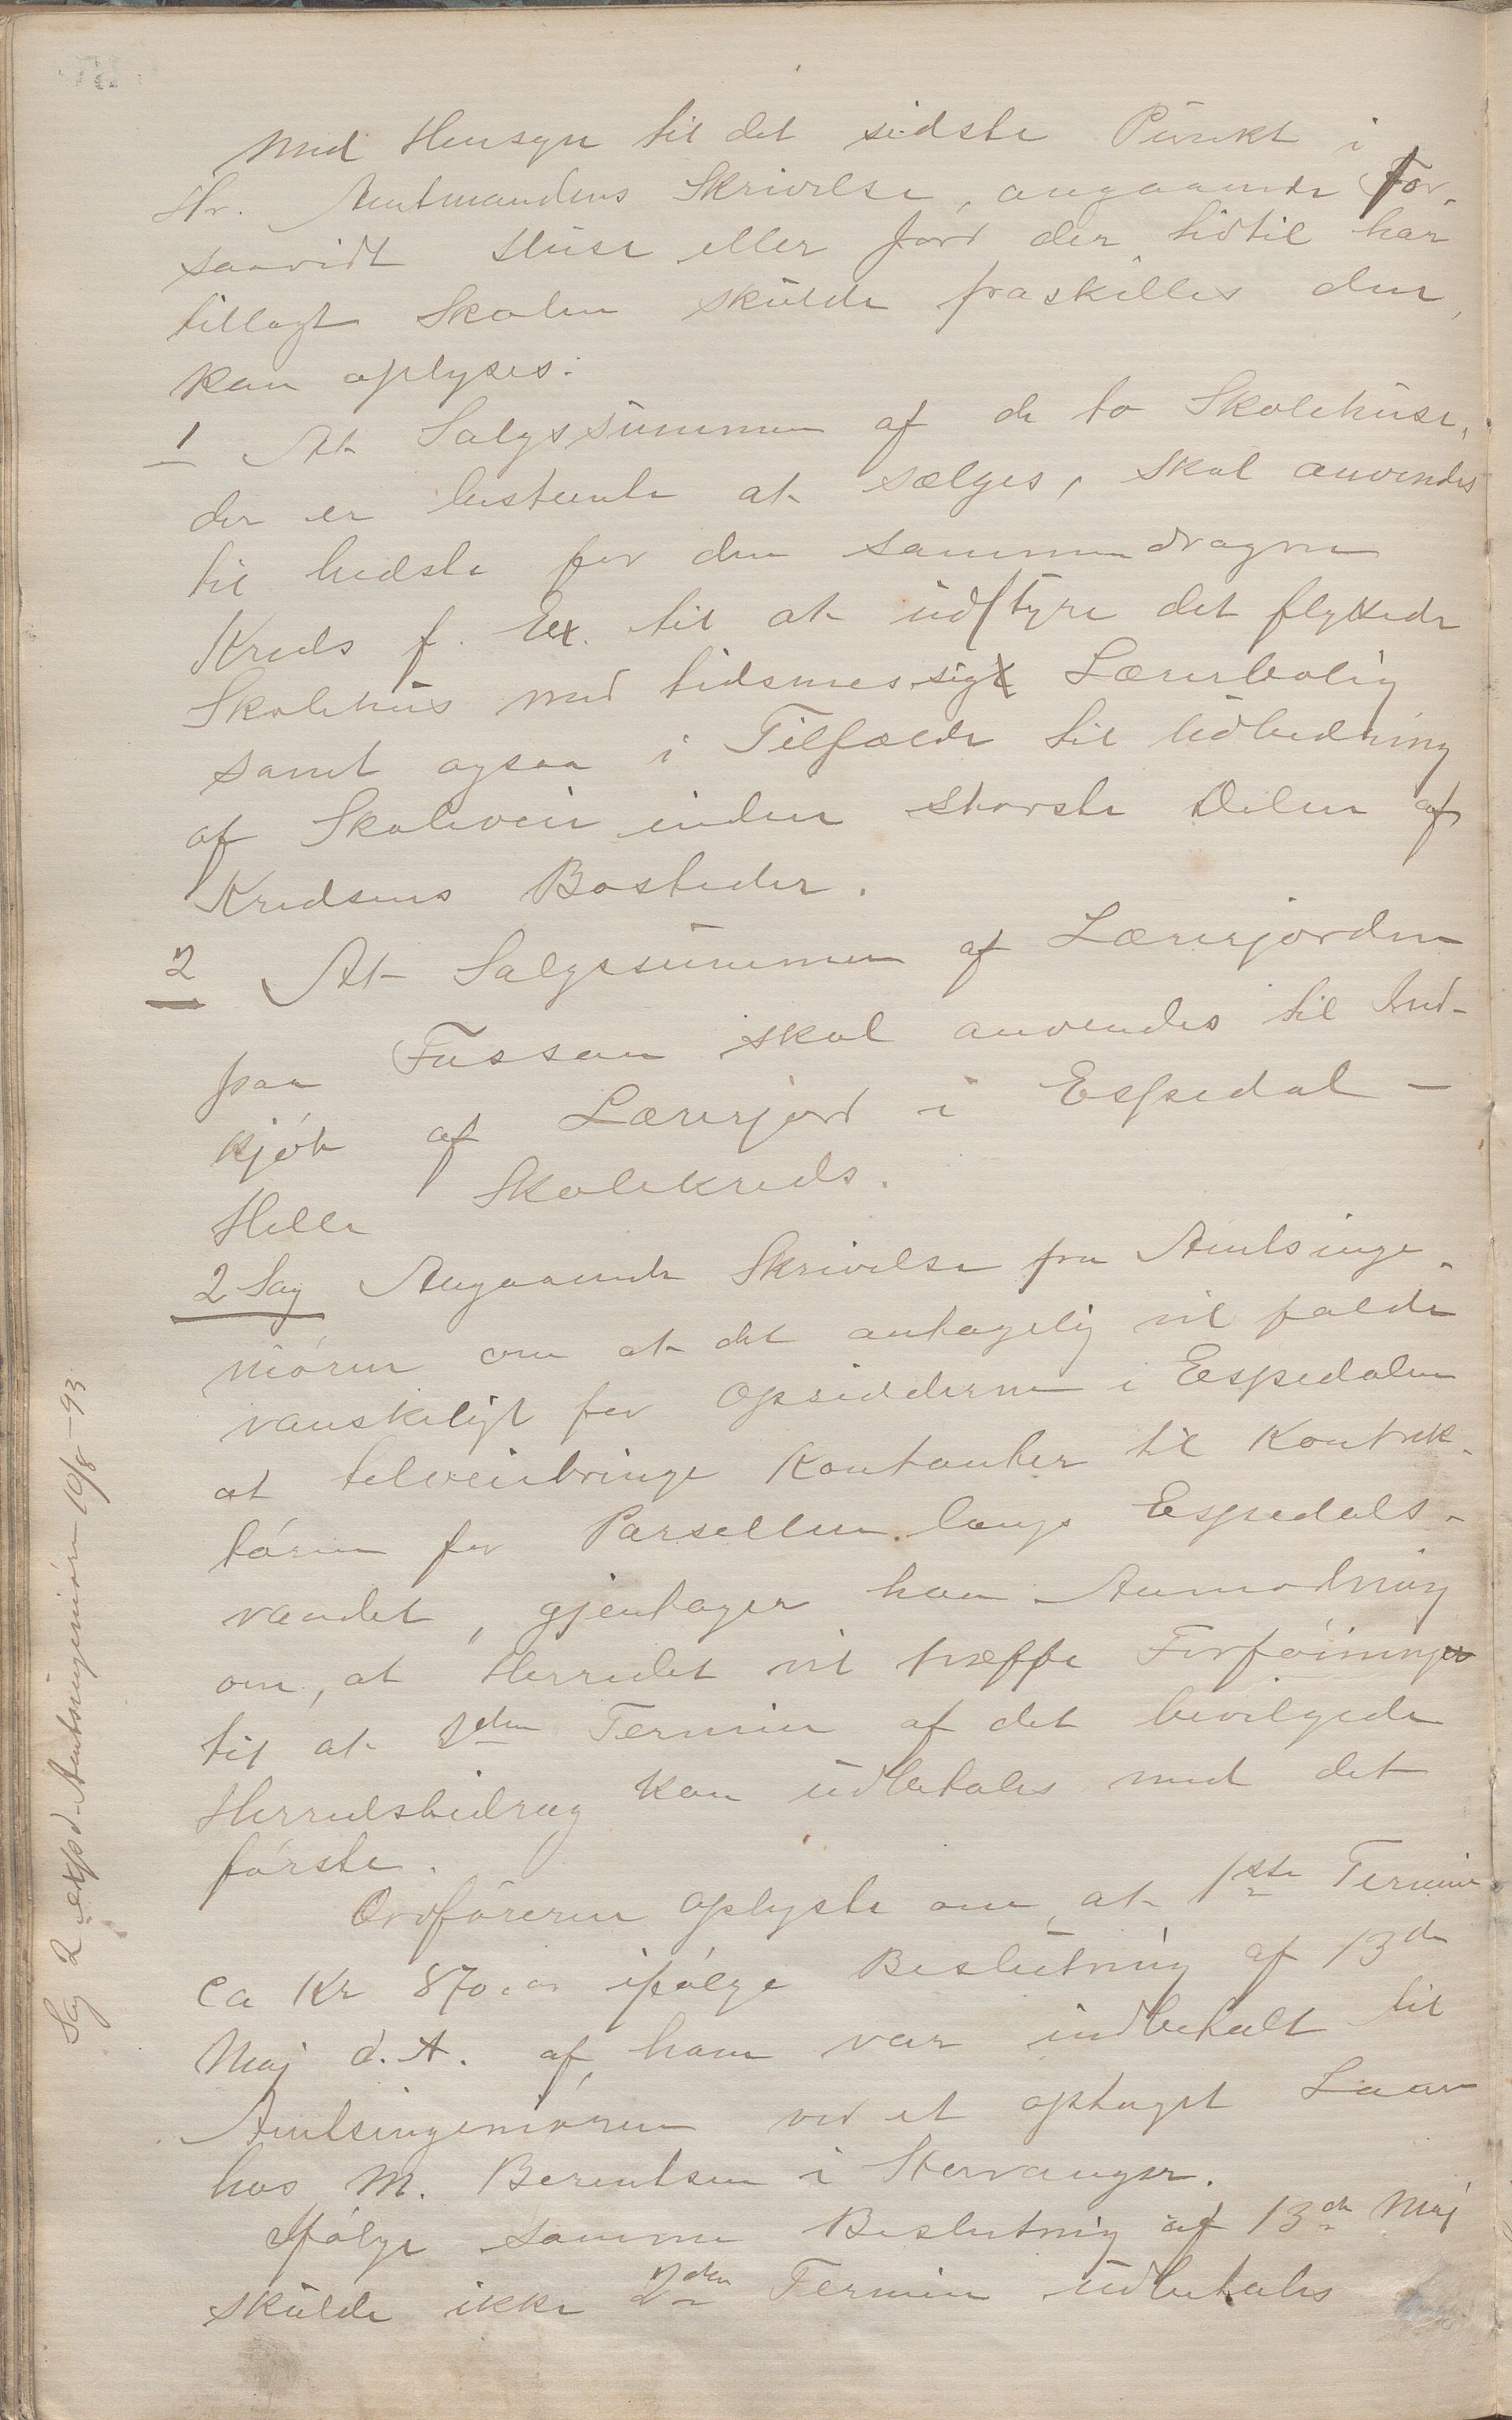 Med Hensyn til det sidste Punkt i
Hr. Amtmandens Skrivelse, angaaende For-
saavidt Huse eller Jord der hidtil har
tillagt Skolen skulde fraskilles den,
kan oplyses:
1 At Salgssummen af de to Skolehuse,
der er bestemte at sælges, skal anvendes
til bedste for den sammendragne
Kreds f. Ex. til at udstyre det flyttede
Skolehus med tidsmessigt Lærerbolig
samt ogsaa i Tilfælde til Udbedring
af Skoleveie inden største Delen af
Kredsens Bosteder.
2 At Salgssummen af Lærerjorden
paa Fossan skal anvendes til Ind-
kjøb af Lærerjord i Espedal -
Helle Skolekreds.
2 Sag Angaaende Skrivelse fra Amtsinge-
niøren om at det antagelig vil falde
vanskeligt for Opsidderne i Espedalen
at tilveiebringe Kontanter til Kontrak-
tøren for Parsellen langs Espedals-
vandet, gjentager han Anmodning
om, at Herredet vil træffe Forføininger
til at 2den Termin af det bevilgede
Herredsbidrag kan udbetales med det
første.
Ordføreren oplyste om, at 1ste Termin
ca Kr 870,00 ifølge Beslutning af 13de
Maj d. A. af ham var indbetalt til
Amtsingeniøren ved et optaget Laan
hos M. Berentsen i Stavanger.
Ifølge samme Beslutning af 13de Maj
skulde ikke 2den Termin udbetales
Sag 2 expd. Amtsingeniøren 10/8-93